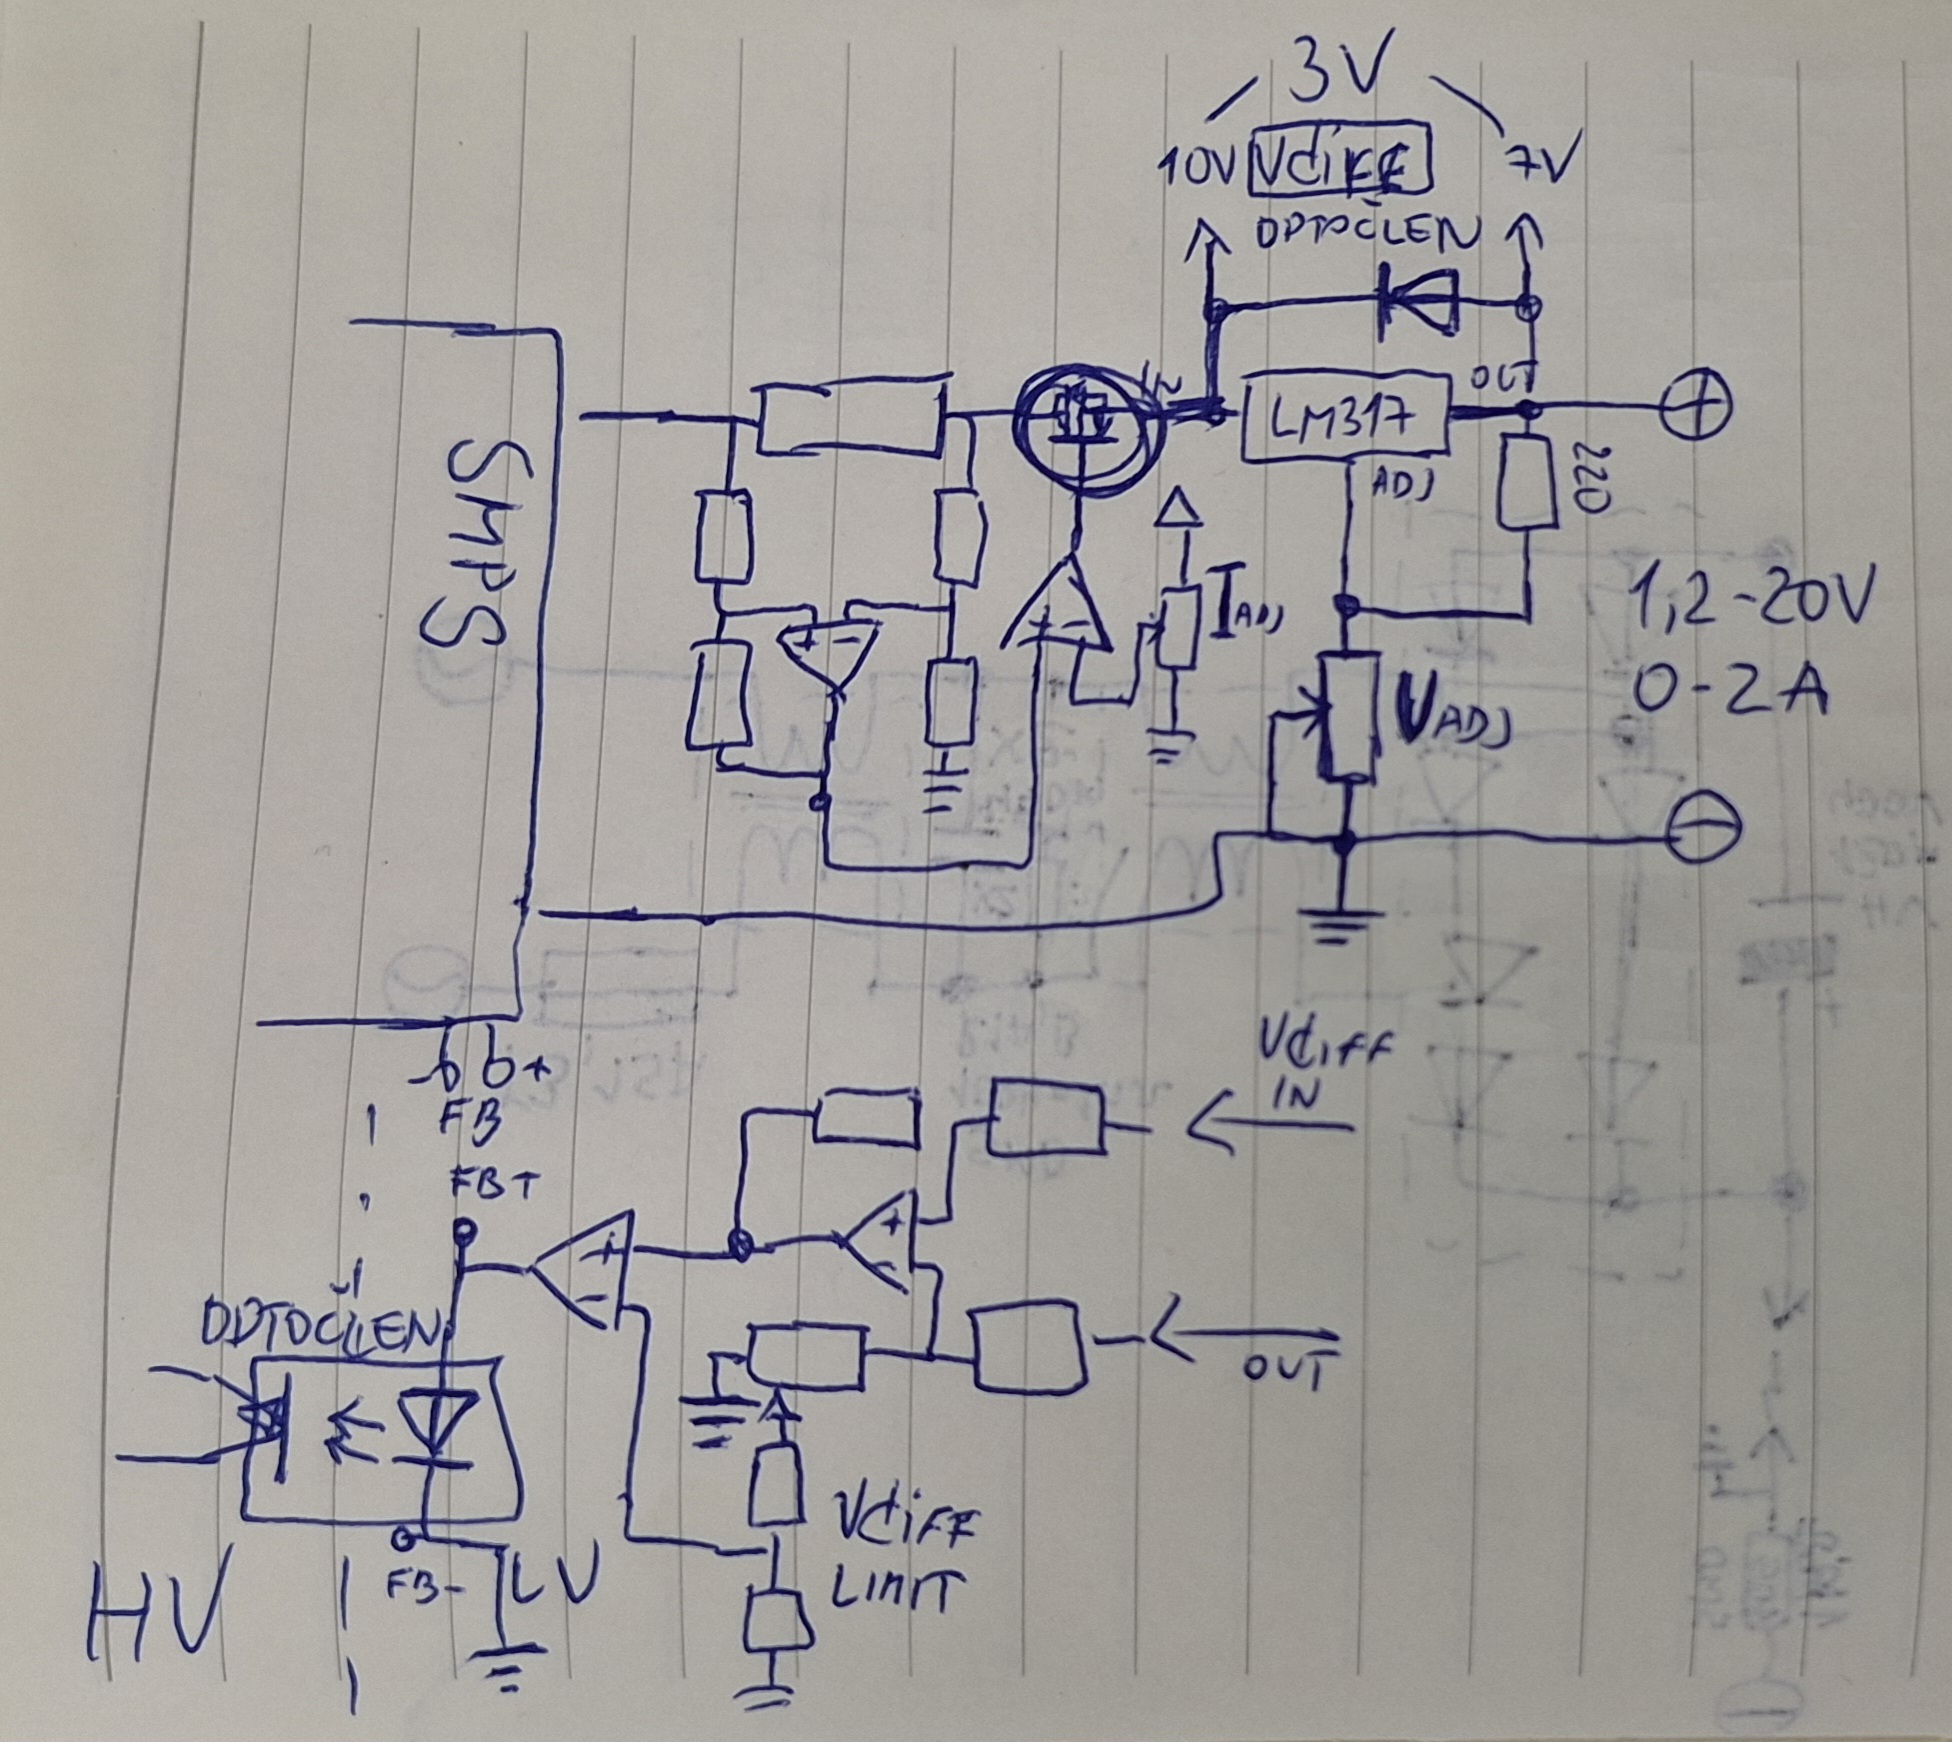 3V
10V Vdiff 7V
OPTOČLEN
IN
LM317
OUT
ADJ
220
SMPS
+ -
+ -
IADJ
VADJ
1,2-20V
0-2A
+
-
- +
FB
FB+
Vdiff
IN
+
-
+
-
OUT
OPTOČLEN
Vdiff
LIMIT
FB-
HV
LV